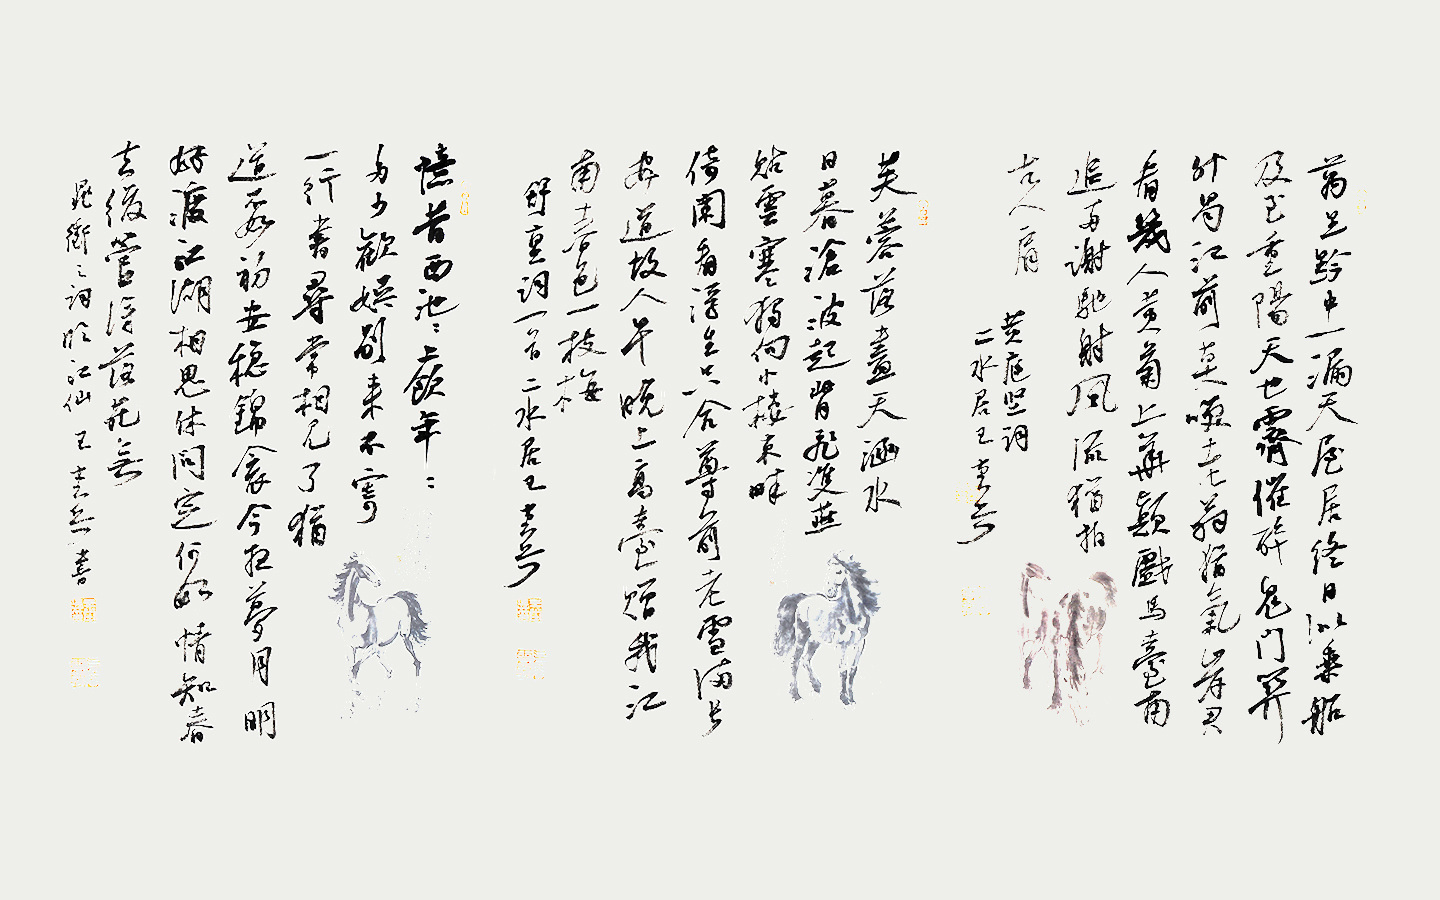 萬里黔中一漏天屋居終日似乘船
及至重陽天也霽催醉鬼門關
外蜀江前莫咲老翁猶氣岸君
看幾人黄菊上華顛戲馬臺南
追兩謝馳射風流猶拍
古人肩
黄庭堅詞
二水居王
芙蓉落盡天涵水
日暮滄波起背飛雙燕
貼雲寒獨向小樓東畔
倚闌看浮生只合尊前老雪滿長
安道故人早晚上高臺贈我江
南春色一枝梅
舒亶詞一首二水居王
憶昔西池池上飲年年
多少歡娛別來不寄
一行書尋常相見了猶
道不如初安穩錦衾今夜夢月明
好渡江湖相思休問定何如情知春
去後管得落花無
晁衝之詞臨江仙 王 書